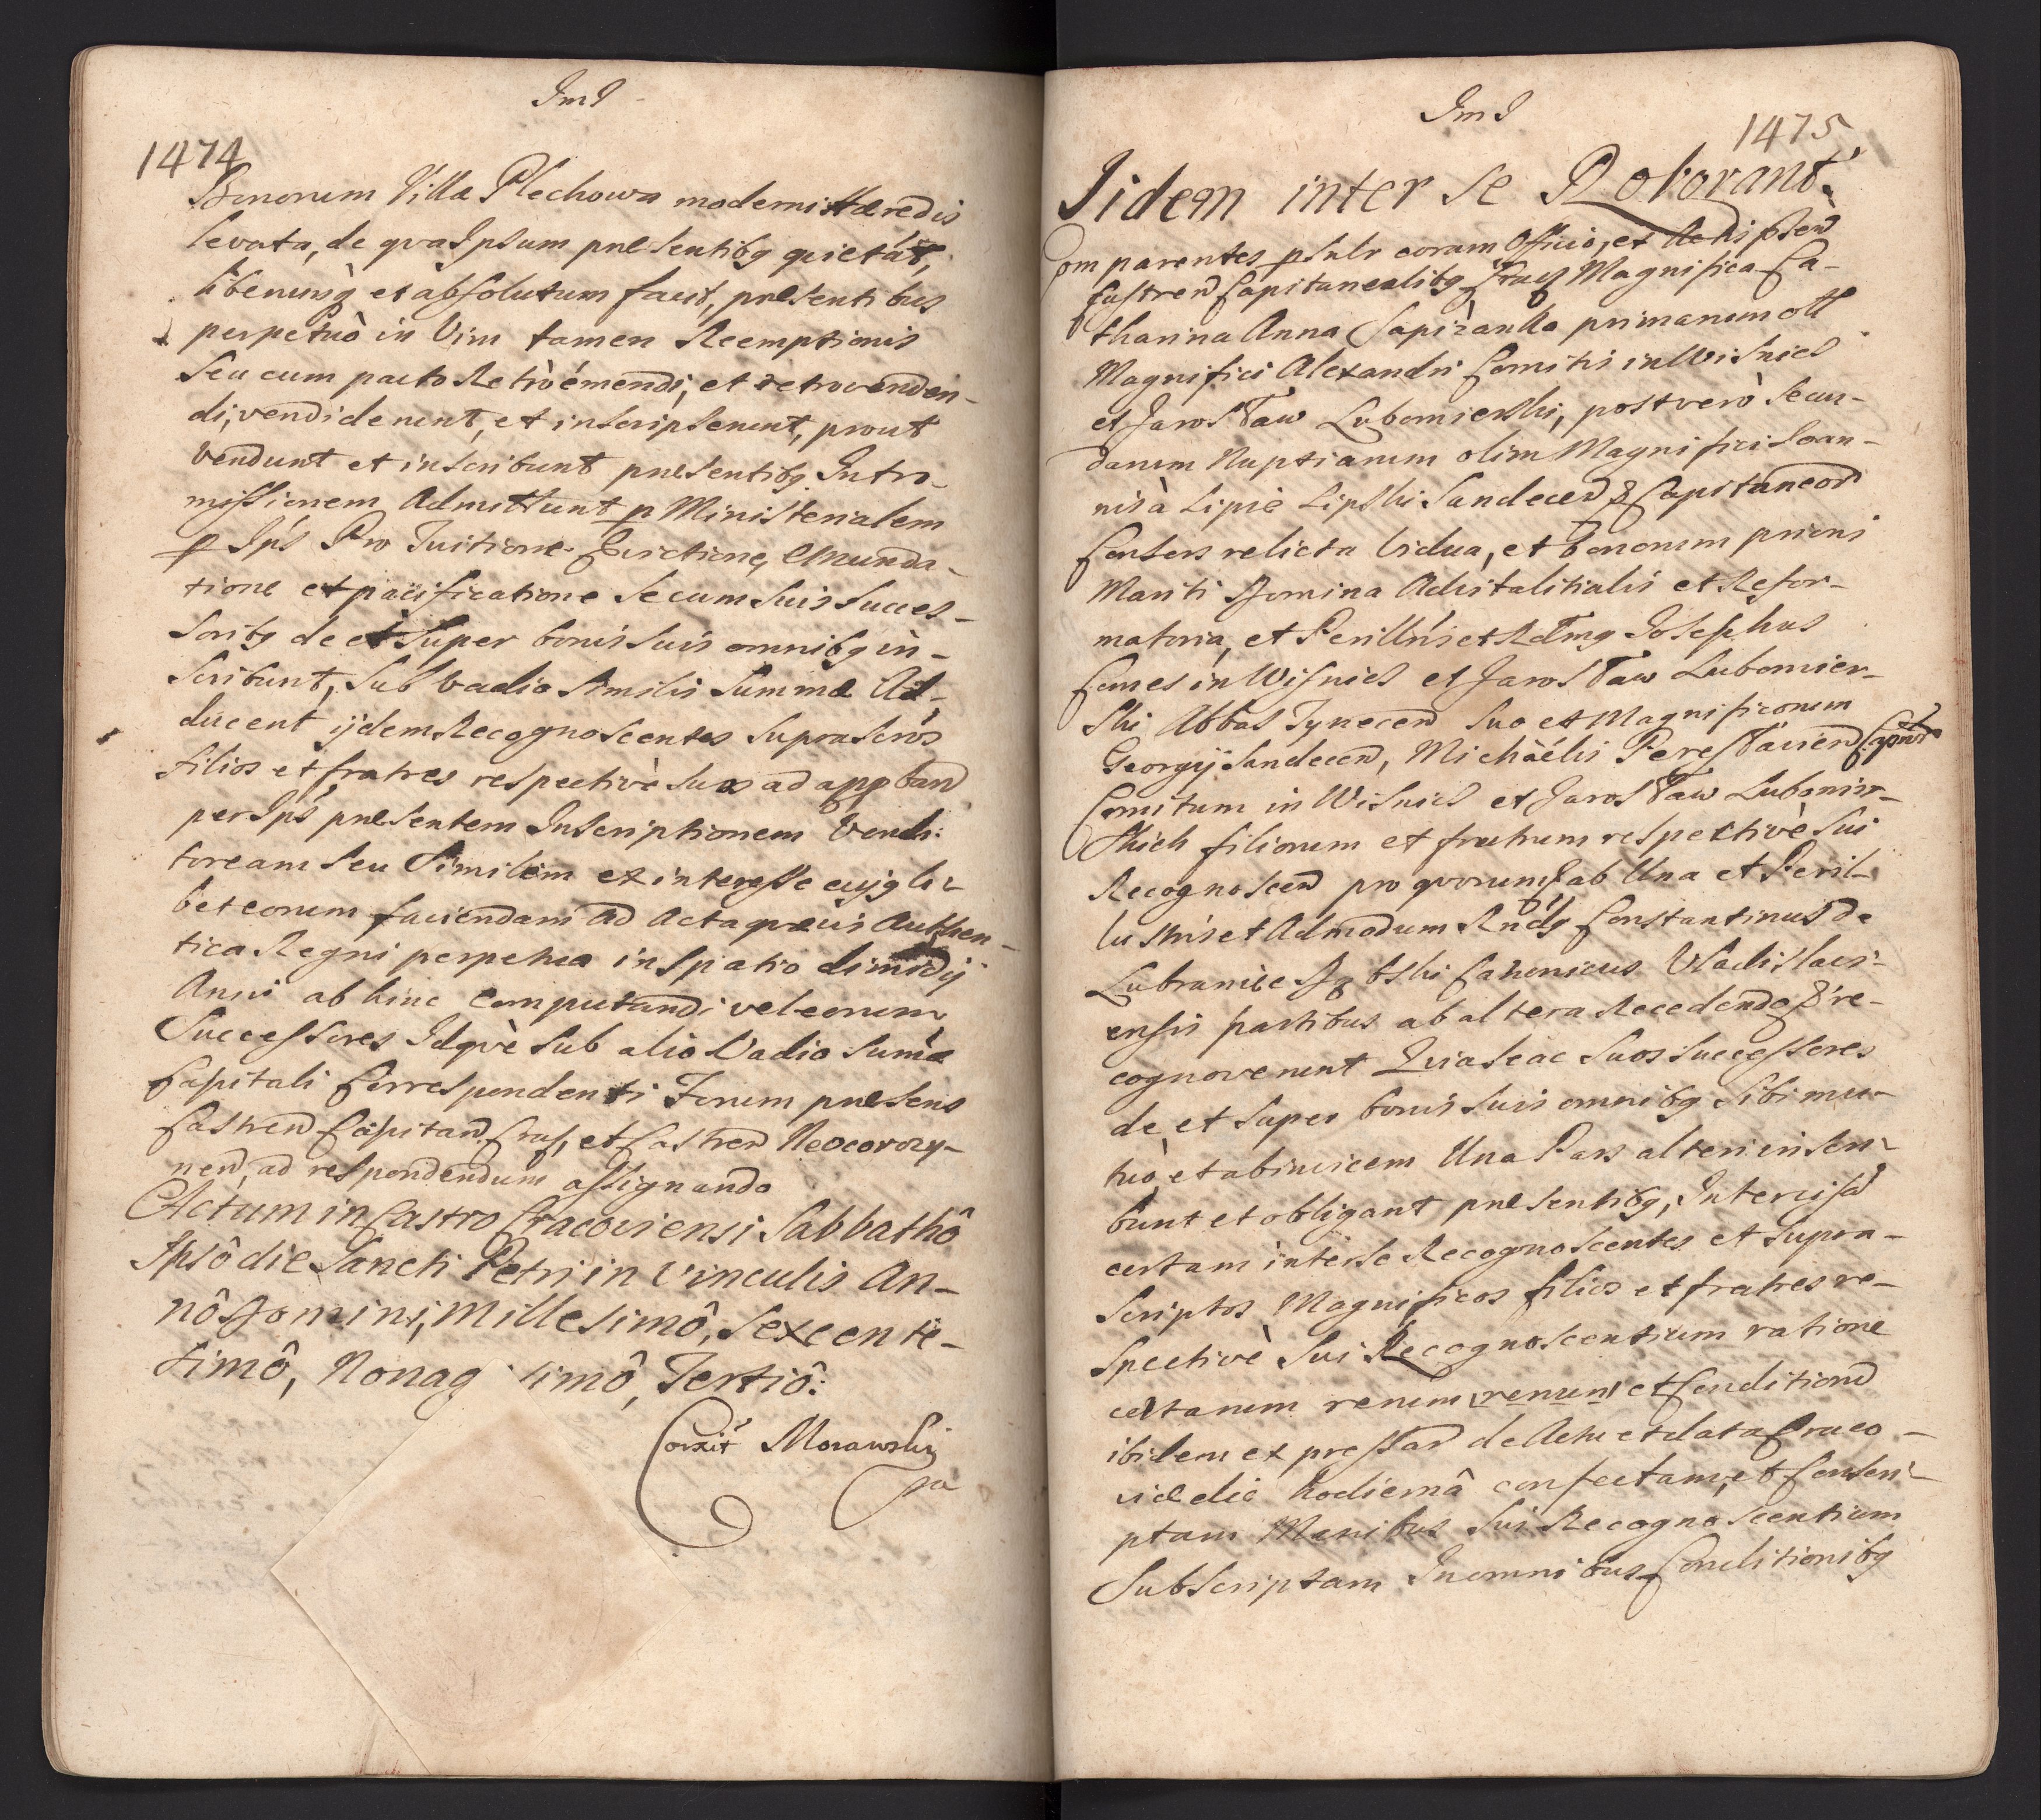 Ind
1474
Bonorum Villa Plechowa moderni Hæredis
levata, de qva Ipsum præsentibg quietat,
liberumq et absolutum facit, præsentibus
perpetuò in Vim tamen Reemptionis
seu cum pacto Retròémendi, et retrovenden-
di, vendiderunt, et inscripserunt, prout
Vendunt et inscribunt præsentibg. Intro-
missionem Admittunt p Ministerialem
p Ips Pro Tuitione Evictione, Emunda-
tione et pacificatione Secum suis Succes-
soribg de et super bonis suis omnibg in-
scribunt, sub vadio similis Summæ Ad-
ducent ijdem Recognoscentes suprascros
filios et fratres respectivè suos ad appband
per Ips præsentem Inscriptionem Vendi:
toream seu Similem ex interesse cujgli-
bet eorum faciendam ad Acta qvævis Authen-
tica Regni perpetua in Spatio dimidij
Anni ab hinc Computandi vel eorum
Successores Idqvè sub alio Vadio Sumæ
Capitali Correspondenti Forum præsens
Castren Capitan Crac, et Castren Neocorczy-
nen, ad respondendum assignando
Actum in Castro Cracoviensi Sabbathô
Ipsô die Sancti Petri in Vinculis An-
nô Domini, Millesimô, Sexcente-
simô, Nonag simô, Tertiô:
Corxit Morawski
Ind
1475
Iidem inter se Roborant
Comparentes psnlr coram Officio, et Actis psen
Castren Capitanealibg Crac Magnifica Ca-
tharina Anna Sapizanka primarum olt
Magnifici Alexandri Comitis in Wisnicz
et Jarosław Lubomierski, post verò Secun-
darum Nuptiarum olim Magnifici Joan-
nis à Lipie Lipski Sandecen & Capitaneor
Consors relicta Vidua, et bonorum prioris
Mariti Domina Advitalitialis et Refor-
matoria, et Perillris et Rdmg Josephus
Comes in Wisnicz et Jarosław Lubomier-
ski Abbas Tynecen suo et Magnificorum
Georgij Sandecen, Michäélis Peresławien Capnr
Comitum in Wisnicz et Jarosław Lubomir-
skich filiorum et fratrum respectivè Sui
Recognoscen pro qvorum & ab Una et Peril-
lustris et Admodum Rndg Constantinus de
Lubraniec Dąbski Canonicus Vladislavi-
ensis partibus ab altera Recedendo & re-
cognoverunt Quia se ac suos successores
de et super bonis suis omnibg sibi mu-
tuò, et abinvicem Una Pars alteri inscri-
bunt et obligant præsentibg, Intercisa
certam inter se Recognoscentes et supra-
scriptos Magnificos filios et fratres re-
spectivè sui Recognoscentium ratione
certarum rerum rerum et Condition
ibidem expressar de Actu et data Craco-
viæ die hodiernâ confectam, et Conscri-
ptam Manibus sui Recognoscentium
Subscriptam In omnibus Conditionibg